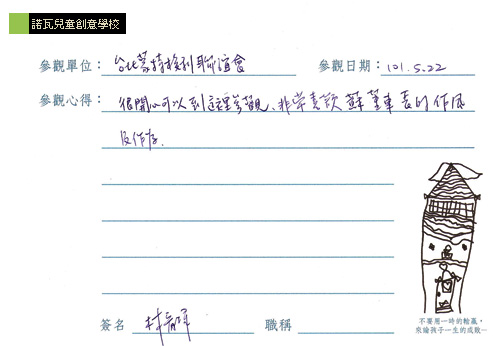 諾瓦兒童創意學校
參觀單位：台北蒙特梭利聯誼會 參觀日期：101.5.22
參觀心得：很開心可以到這裡參觀、非常喜歡蘇董事長的作風
及作存.
簽名 林 職稱
不要用一時的輸贏，
來論孩子一生的成敗…